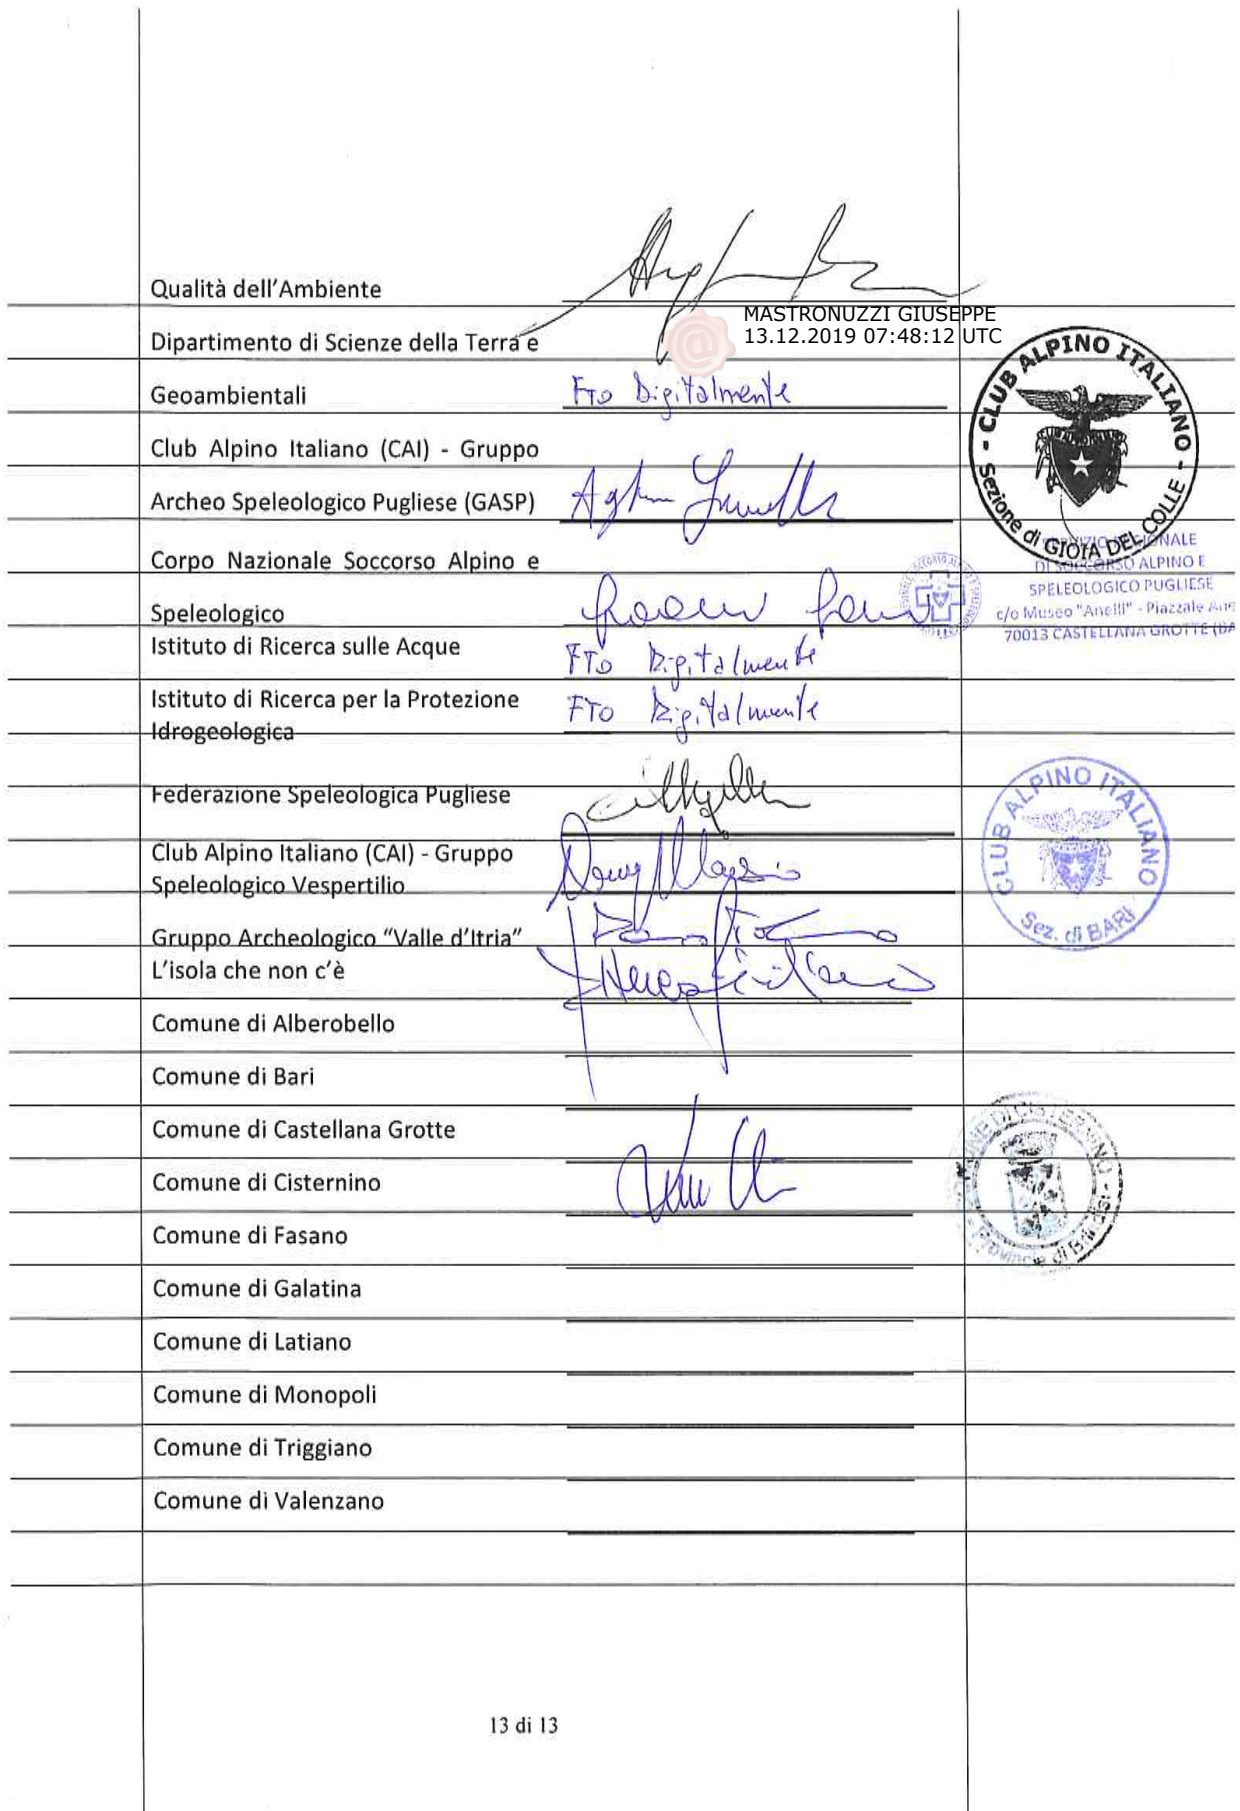 Qualità dell'Ambiente
MASTRONUZZI GIUSEPPE
13.12.2019 07:48:12 UTC
Dipartimento di Scienze della Terra e
Geoambientali
FTO Digitalmente
CLUB ALPINO ITALIANO
Sezione di GIOIA DEL COLLE
Club Alpino Italiano (CAI) - Gruppo
Archeo Speleologico Pugliese (GASP)
Corpo Nazionale Soccorso Alpino e
Speleologico
DI SOCCORSO ALPINO E
SPELEOLOGICO PUGLIESE
c/o Museo "Anelli" - Piazzale
70013 CASTELLANA GROTTE (BA
Istituto di Ricerca sulle Acque
FTO Digitalmente
Istituto di Ricerca per la Protezione
Idrogeologica
FTO Digitalmente
Federazione Speleologica Pugliese
Club Alpino Italiano (CAI) - Gruppo
Speleologico Vespertilio
CLUB ALPINO ITALIANO
Sez. di BARI
Gruppo Archeologico "Valle d'Itria"
L'isola che non c'è
Comune di Alberobello
Comune di Bari
Comune di Castellana Grotte
Comune di Cisternino
Comune di Fasano
Comune di Galatina
Comune di Latiano
Comune di Monopoli
Comune di Triggiano
Comune di Valenzano
13 di 13